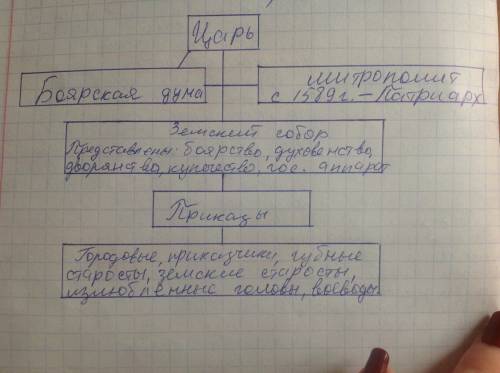 Царь
Боярская дума
митрополит
с 1589 г. – Патриарх
Земский собор
Представлены: боярство, духовенство,
дворянство, купечество, гос. аппарат
Приказы
Городовые, приказчики, губные
старосты, земские старосты,
излюбленные головы, воеводы